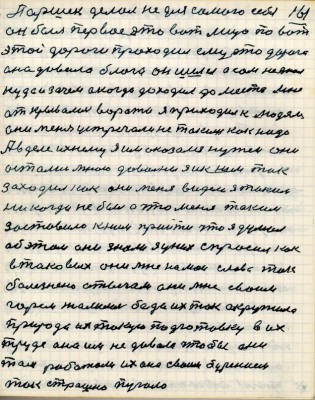 Паршек делал не для самого себя 161
он был первое это вот лицо по вот
этой дороги проходил ему это дорога
она давала блага он шел а сам не знал
куда и зачем а когда доходил до места мне
открывали ворота я приходил к людям
они меня устречали не таким как надо
А в деле ихнему я им оказался нужен они
остались мною довольны я к ним так
заходил как они меня видели я таким
никогда не был а то меня таким
заставило к ним прийти что я думал
об этом они знали я у них спросил как
в таковых они мне на мои слова так
болезнено отвечали они мне своим
горем жалились беда их так окружила
природа их такую подготовку в их
труде она им не давала чтобы они
там работали их она своим бурением
так страшно пугала